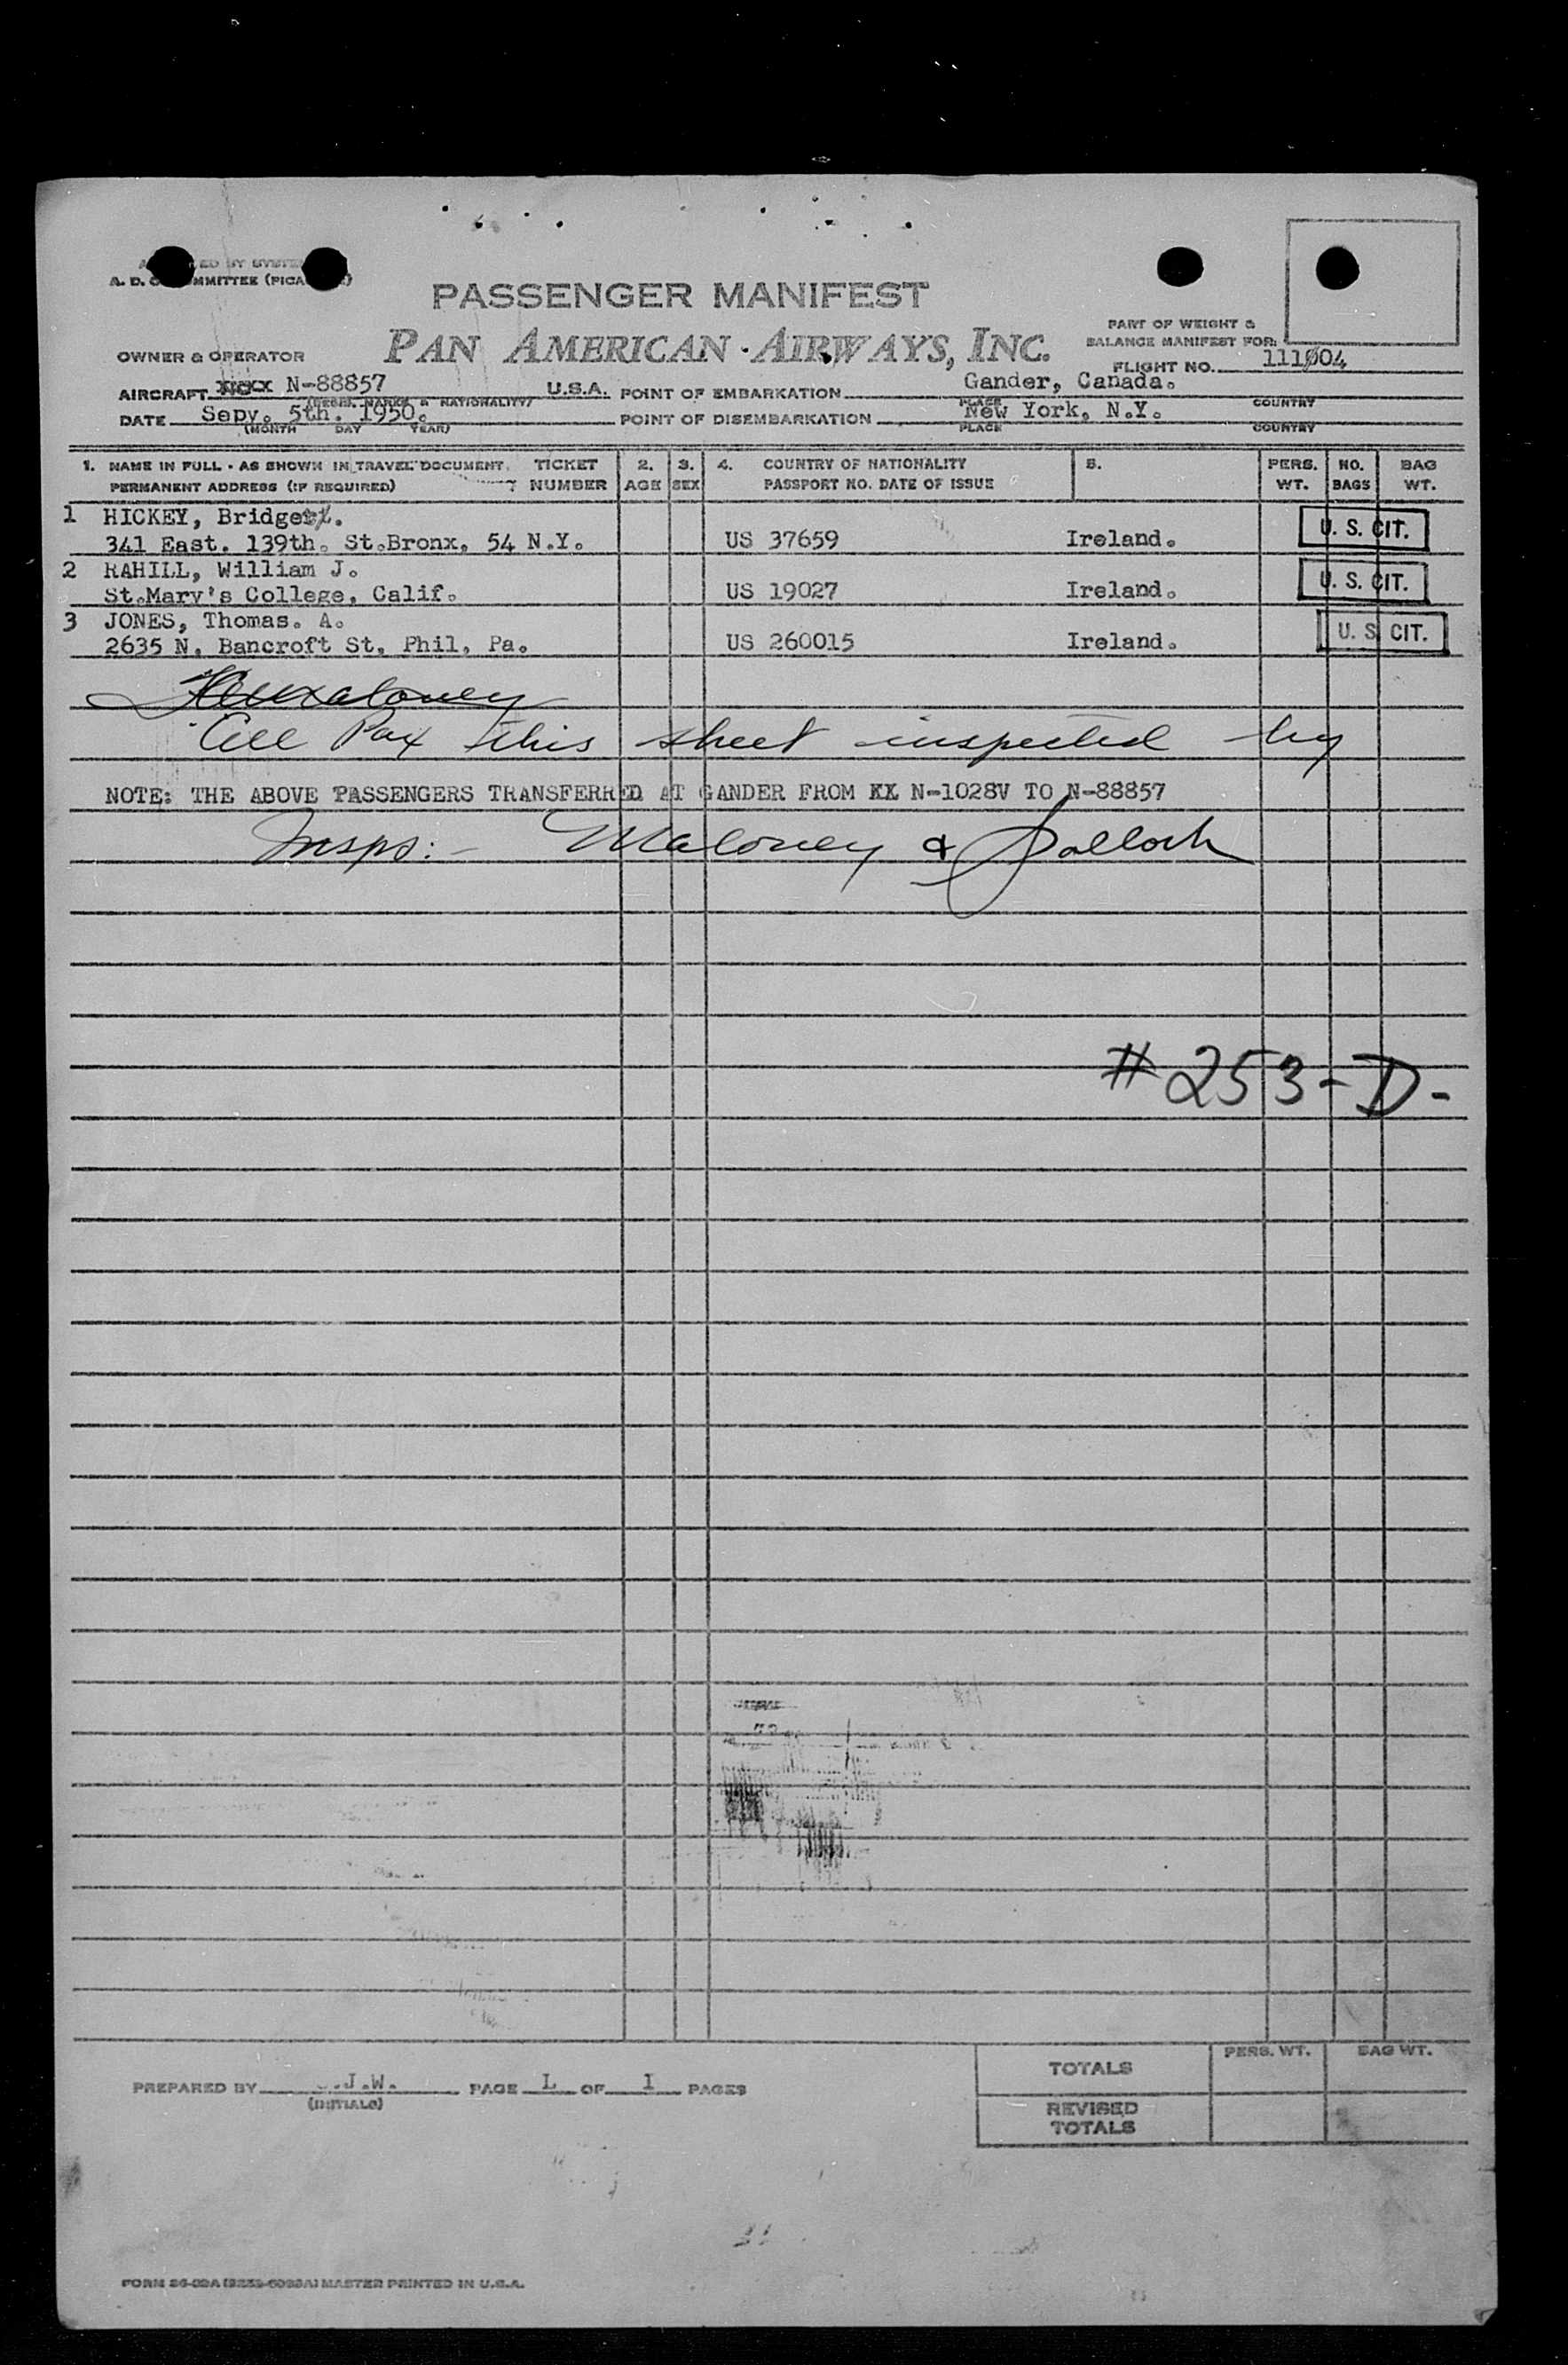 A. D. C. COMMITTEE
PASSENGER MANIFEST
PAN AMERICAN AIRWAYS, INC.
PART OF WEIGHT &
BALANCE MANIFEST FOR:
FLIGHT NO. 111004
OWNER & OPERATOR
AIRCRAFT N-88857 U.S.A. POINT OF EMBARKATION Gander, Canada.
(REGIS. MARKS & NATIONALITY) PLACE COUNTRY
DATE Sepy. 5th. 1950. POINT OF DISEMBARKATION New York, N.Y.
(MONTH DAY YEAR) PLACE COUNTRY
1. NAME IN FULL - AS SHOWN IN TRAVEL DOCUMENT. TICKET 2. 3. 4. COUNTRY OF NATIONALITY 5. PERS. NO. BAG
PERMANENT ADDRESS (IF REQUIRED) NUMBER AGE SEX PASSPORT NO. DATE OF ISSUE WT. BAGS WT.
1 HICKEY, Bridget.
341 East. 139th. St.Bronx, 54 N.Y. US 37659 Ireland. U. S. CIT.
2 RAHILL, William J.
St.Mary's College, Calif. US 19027 Ireland. U. S. CIT.
3 JONES, Thomas. A.
2635 N. Bancroft St. Phil, Pa. US 260015 Ireland. U. S. CIT.
All Pax this sheet inspected by
NOTE: THE ABOVE PASSENGERS TRANSFERRED AT GANDER FROM N-1028V TO N-88857
Insps:- Maloney & Pollock
# 253-D-
TOTALS PERS. WT. BAG WT.
PREPARED BY J.W. PAGE 1 OF 1 PAGES
(INITIALS)
REVISED
TOTALS
MASTER PRINTED IN U.S.A.